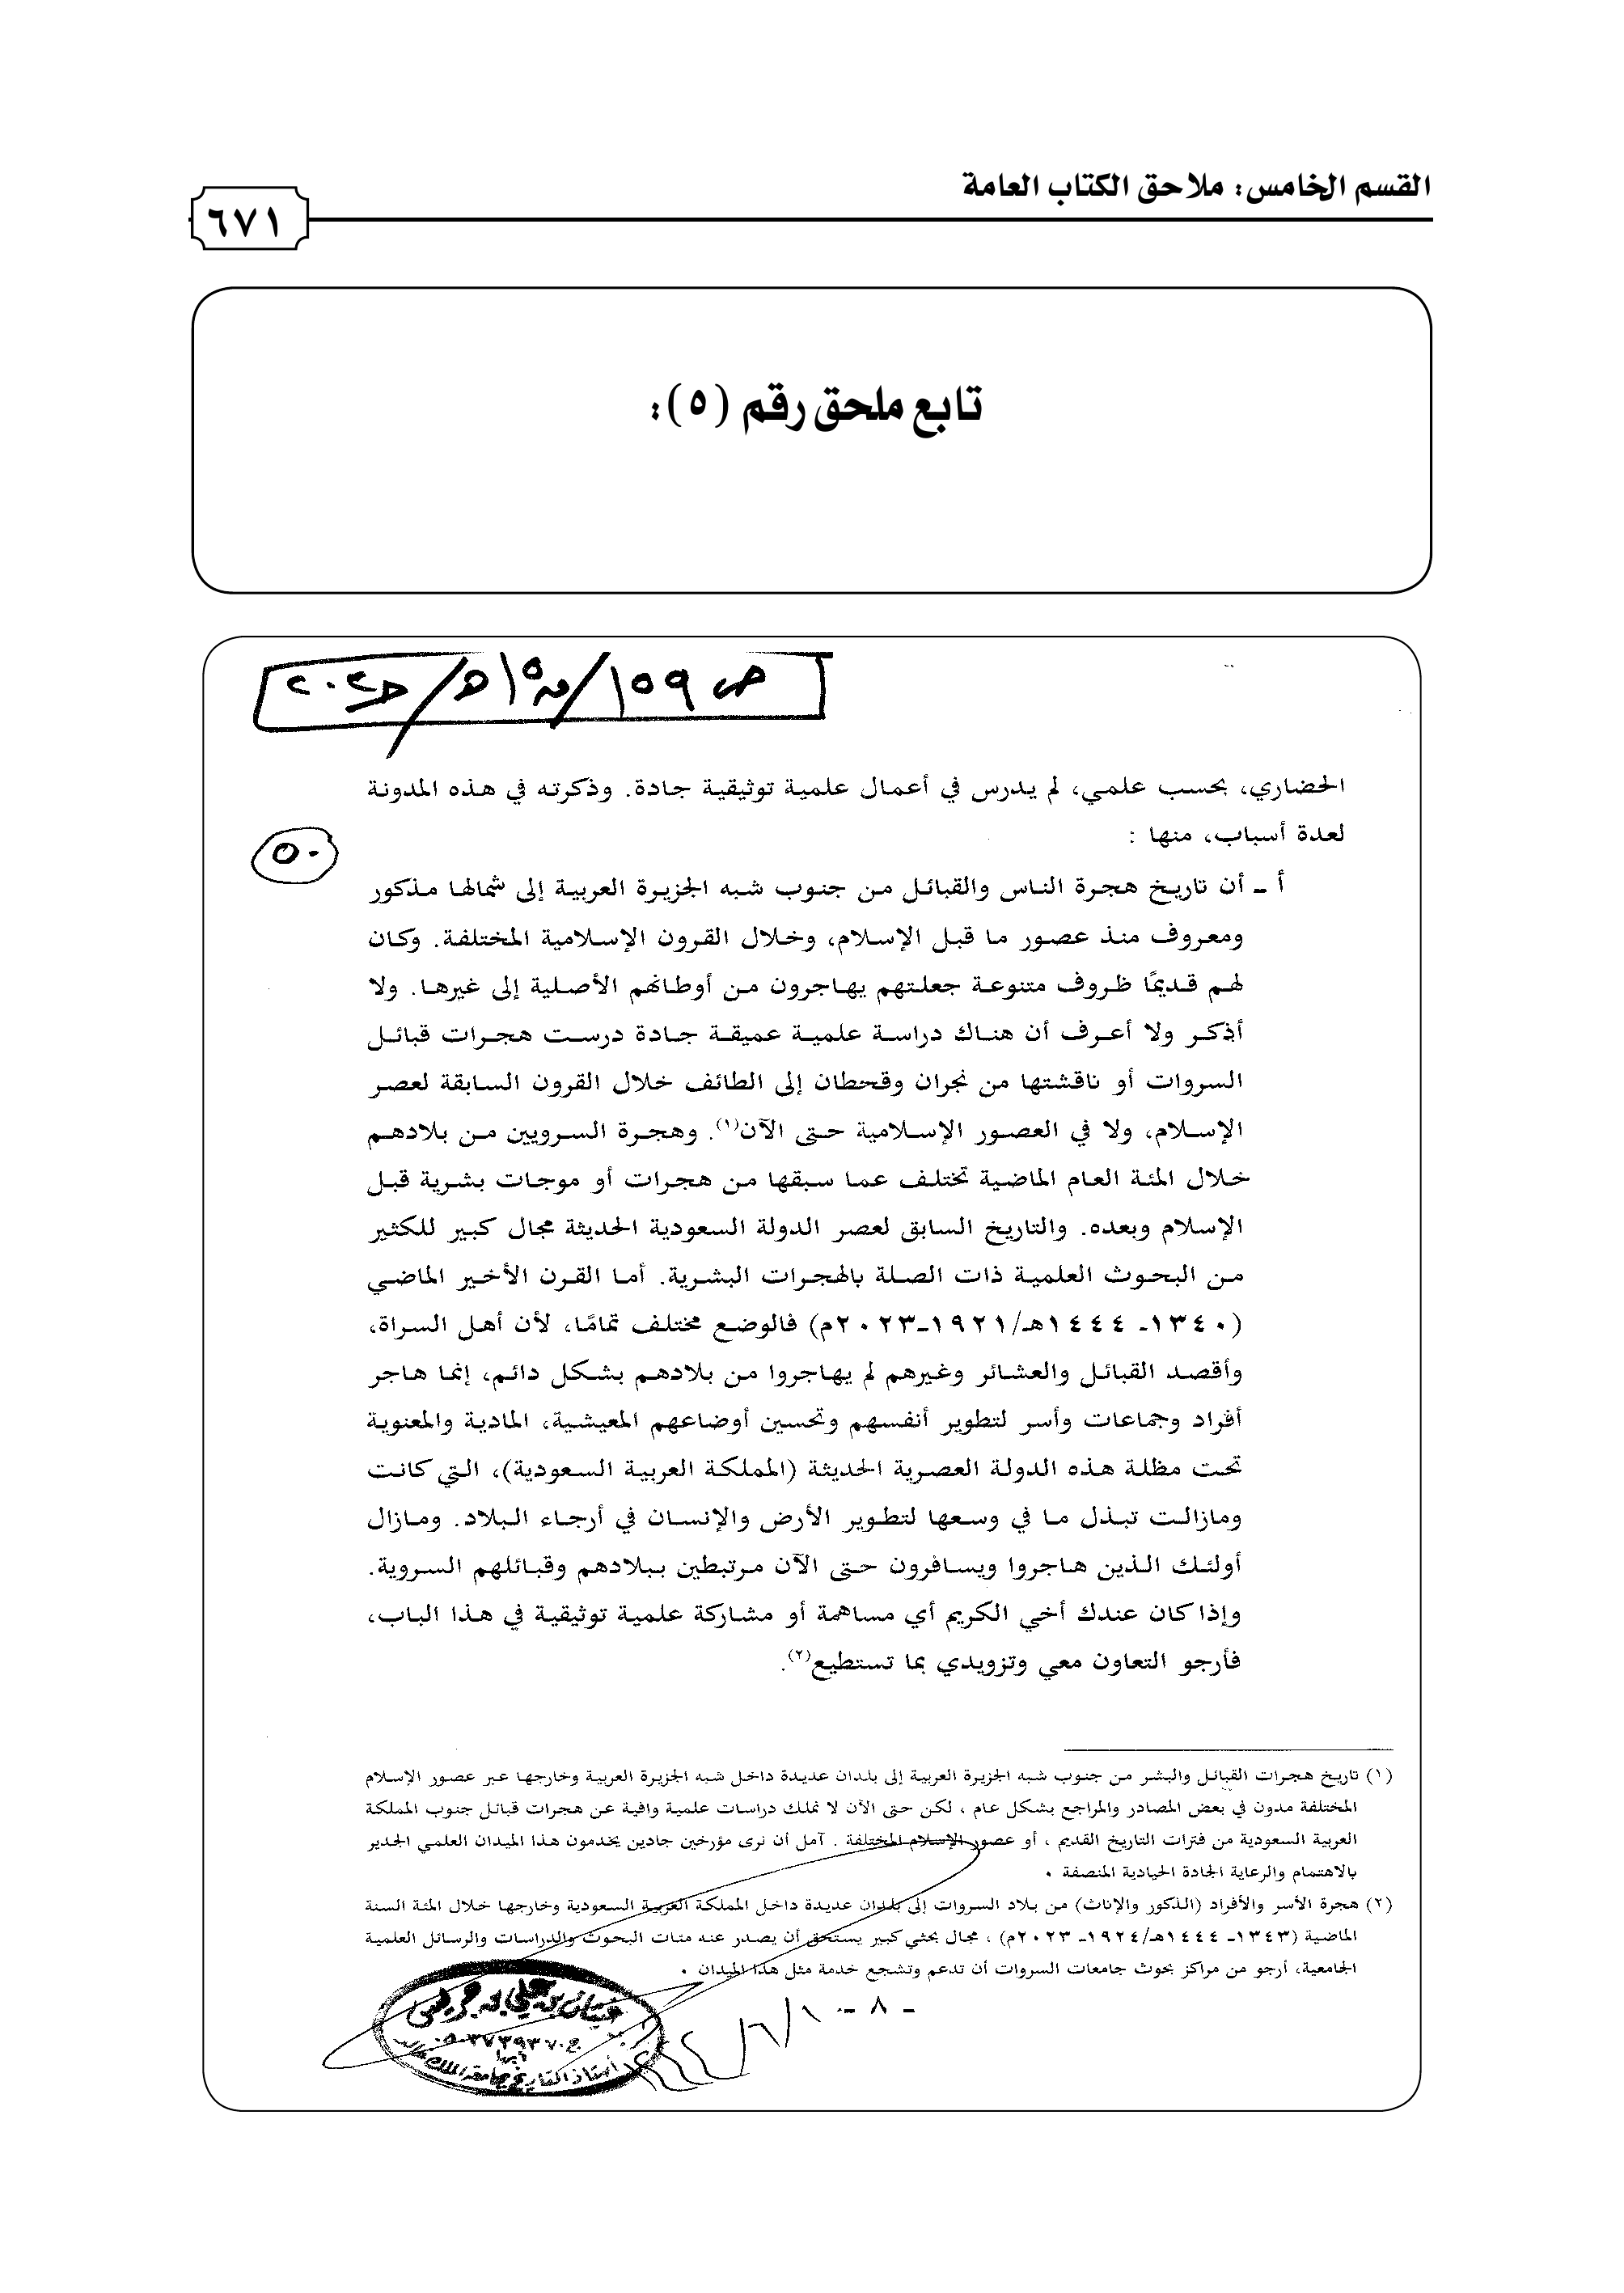 القسم الخامس: ملاحق الكتاب العامة
٦٧١
تابع ملحق رقم (٥):
ص ١٥٩/
٥٠
الحضاري، بحسب علمي، لم يدرس في أعمال علمية توثيقية جادة. وذكرته في هذه المدونة
لعدة أسباب، منها :
أ ـ أن تاريخ هجرة الناس والقبائل من جنوب شبه الجزيرة العربية إلى شمالها مذكور
ومعروف منذ عصور ما قبل الإسلام، وخلال القرون الإسلامية المختلفة. وكان
لهم قديمًا ظروف متنوعة جعلتهم يهاجرون من أوطانهم الأصلية إلى غيرها. ولا
أذكر ولا أعرف أن هناك دراسة علمية عميقة جادة درست هجرات قبائل
السروات أو ناقشتها من نجران وقحطان إلى الطائف خلال القرون السابقة لعصر
الإسلام، ولا في العصور الإسلامية حتى الآن(١). وهجرة السرويين من بلادهم
خلال المئة العام الماضية تختلف عما سبقها من هجرات أو موجات بشرية قبل
الإسلام وبعده. والتاريخ السابق لعصر الدولة السعودية الحديثة مجال كبير للكثير
من البحوث العلمية ذات الصلة بالهجرات البشرية. أما القرن الأخير الماضي
(١٣٤٠ـ ١٤٤٤هـ/١٩٢١ـ٢٠٢٣م) فالوضع مختلف تمامًا، لأن أهل السراة،
وأقصد القبائل والعشائر وغيرهم لم يهاجروا من بلادهم بشكل دائم، إنما هاجر
أفراد وجماعات وأسر لتطوير أنفسهم وتحسين أوضاعهم المعيشية، المادية والمعنوية
تحت مظلة هذه الدولة العصرية الحديثة (المملكة العربية السعودية)، التي كانت
ومازالت تبذل ما في وسعها لتطوير الأرض والإنسان في أرجاء البلاد. ومازال
أولئك الذين هاجروا ويسافرون حتى الآن مرتبطين ببلادهم وقبائلهم السروية.
وإذا كان عندك أخي الكريم أي مساهمة أو مشاركة علمية توثيقية في هذا الباب،
فأرجو التعاون معي وتزويدي بما تستطيع(٢).
(١) تاريخ هجرات القبائل والبشر من جنوب شبه الجزيرة العربية إلى بلدان عديدة داخل شبه الجزيرة العربية وخارجها عبر عصور الإسلام
المختلفة مدون في بعض المصادر والمراجع بشكل عام ، لكن حتى الآن لا نملك دراسات علمية وافية عن هجرات قبائل جنوب المملكة
العربية السعودية من فترات التاريخ القديم ، أو عصور الإسلام المختلفة . آمل أن نرى مؤرخين جادين يخدمون هذا الميدان العلمي الجدير
بالاهتمام والرعاية الجادة الحيادية المنصفة .
(٢) هجرة الأسر والأفراد (الذكور والإناث) من بلاد السروات إلى بلدان عديدة داخل المملكة العربية السعودية وخارجها خلال المئة السنة
الماضية (١٣٤٣ـ ١٤٤٤هـ/١٩٢٤ـ ٢٠٢٣م) ، مجال بحثي كبير يستحق أن يصدر عنه مئات البحوث والدراسات والرسائل العلمية
الجامعية، أرجو من مراكز بحوث جامعات السروات أن تدعم وتشجع خدمة مثل هذا الميدان .
- ٨ -
أستاذ التاريخ بجامعة الملك خالد